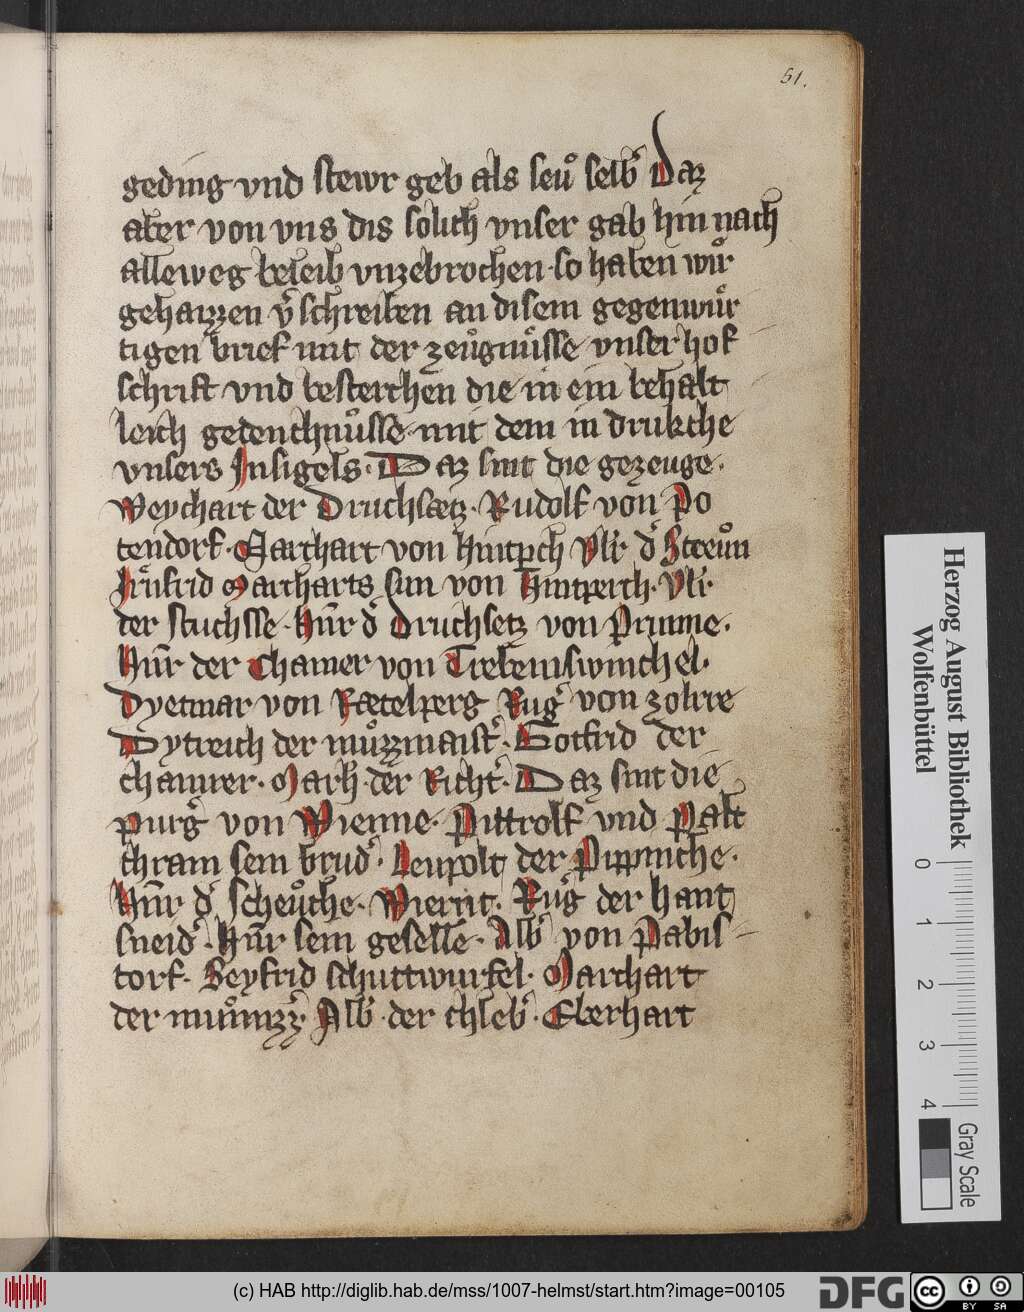 51.
geding vnd stewr geb als seuͦ selb' Daz
aber von vns dis solich vnser gab hin nach
alleweg beleib vnzebrochen · so haben wuͤr
gehaizzen v'schreiben an disem gegenwuͤr
tigen brief mit der zeuͦgnuͦsse vnser hof
schrift vnd besterchen die in ein behalt
leich gedenchnuͦsse · mit dem in drukche
vnsers Insigels · Daz sint die gezeuge ·
Weychart der Druchsaetz · Rudolf von Po
tendorf · Marchart von Hintp̱ch Vlr' d' Streuͦn
Irnfrid Marcharts sun von Hintperch · Vlr' ·
der stuchsse · Hnr̄ d' Druchsetz von Prunne ·
Hnr̄ der Chamer von Trebeinswinchel ·
Dyetmar von Raetelperg Rug' von zohrre
Dytreich der muͦzzmaist' · Gotfrid der
chamrer · Marh · der Richt' · Daz sint die
purg' von Wienne · Pittrolf vnd Palt
chram sein brud' · Leupolt der Pippniche ·
Hnr̄ d' scheuͦche · Wiernt · Rug' der hant
sneid' · Hnr̄ sein geselle · Alb' von Pabis
torf · Seyfrid schuttwurfel · Marchart
der muͦnizz' Alb' · der chleb' · Eberhart
Herzog August Bibliothek
Wolfenbüttel
0 1 2 3 4
Gray Scale
(c) HAB http://diglib.hab.de/mss/1007-helmst/start.htm?image=00105
DFG
cc BY SA